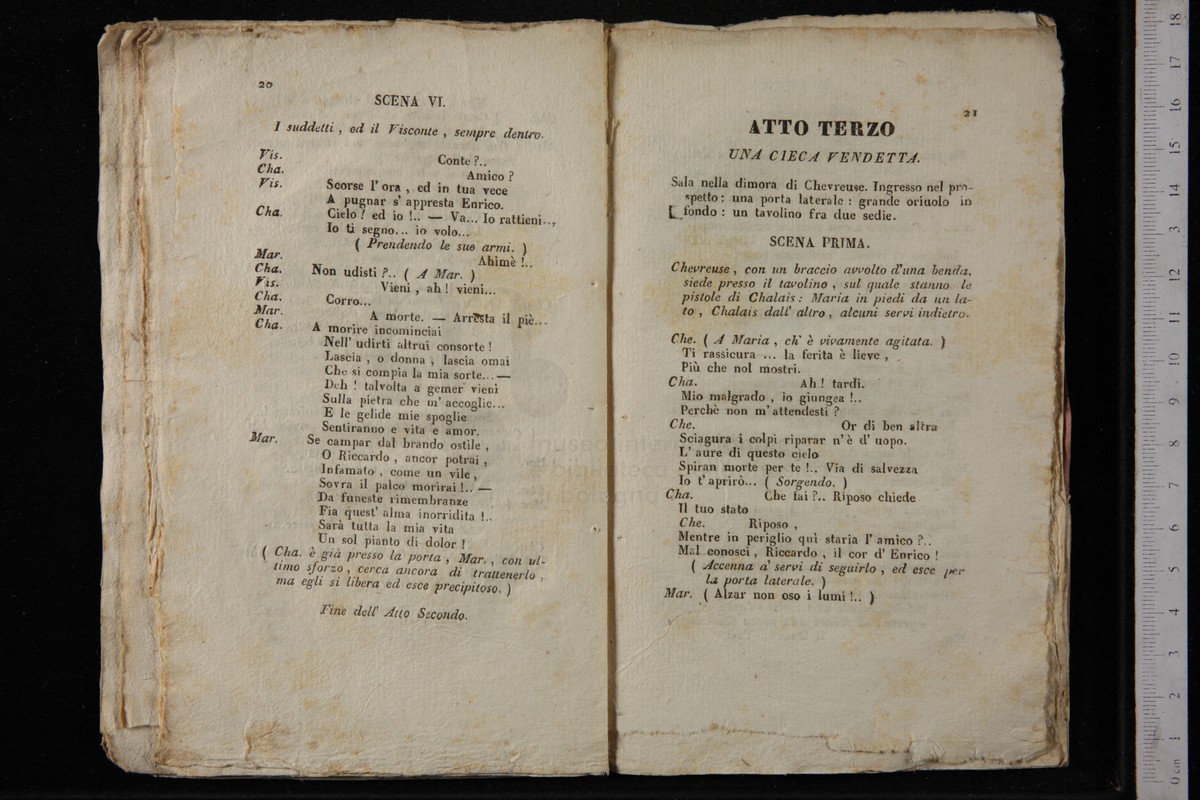 20
SCENA VI.
I suddetti , ed il Visconte , sempre dentro.
Vis. Conte ?..
Cha. Amico ?
Vis. Scorse l' ora , ed in tua vece
A pugnar s' appresta Enrico.
Cha. Cielo ! ed io !.. — Va... Io rattieni...,
Io ti segno... io volo...
( Prendendo le sue armi. )
Mar. Ahimè !..
Cha. Non udisti ?.. ( A Mar. )
Vis. Vieni , ah ! vieni...
Cha. Corro...
Mar. A morte. — Arresta il piè...
Cha. A morire incominciai
Nell' udirti altrui consorte !
Lascia , o donna , lascia omai
Che si compia la mia sorte... —
Deh ! talvolta a gemer vieni
Sulla pietra che m' accoglie...
E le gelide mie spoglie
Sentiranno e vita e amor.
Mar. Se campar dal brando ostile ,
O Riccardo , ancor potrai ,
Infamato , come un vile ,
Sovra il palco morirai !.. —
Da funeste rimembranze
Fia quest' alma inorridita !..
Sarà tutta la mia vita
Un sol pianto di dolor !
( Cha. è già presso la porta , Mar. , con ul-
timo sforzo , cerca ancora di trattenerlo ,
ma egli si libera ed esce precipitoso. )
Fine dell' Atto Secondo.
21
ATTO TERZO
UNA CIECA VENDETTA.
Sala nella dimora di Chevreuse. Ingresso nel pro-
spetto : una porta laterale : grande oriuolo in
fondo : un tavolino fra due sedie.
SCENA PRIMA.
Chevreuse , con un braccio avvolto d'una benda,
siede presso il tavolino , sul quale stanno le
pistole di Chalais : Maria in piedi da un la-
to , Chalais dall' altro , alcuni servi indietro.
Che. ( A Maria , ch' è vivamente agitata. )
Ti rassicura ... la ferita è lieve ,
Più che nol mostri.
Cha. Ah ! tardi.
Mio malgrado , io giungea !..
Perchè non m' attendesti ?
Che. Or di ben altra
Sciagura i colpi riparar n' è d' uopo.
L' aure di questo cielo
Spiran morte per te !.. Via di salvezza
Io t' aprirò... ( Sorgendo. )
Cha. Che fai ?.. Riposo chiede
Il tuo stato
Che. Riposo ,
Mentre in periglio quì staria l' amico ?..
Mal conosci , Riccardo , il cor d' Enrico !
( Accenna a' servi di seguirlo , ed esce per
la porta laterale. )
Mar. ( Alzar non oso i lumi !.. )